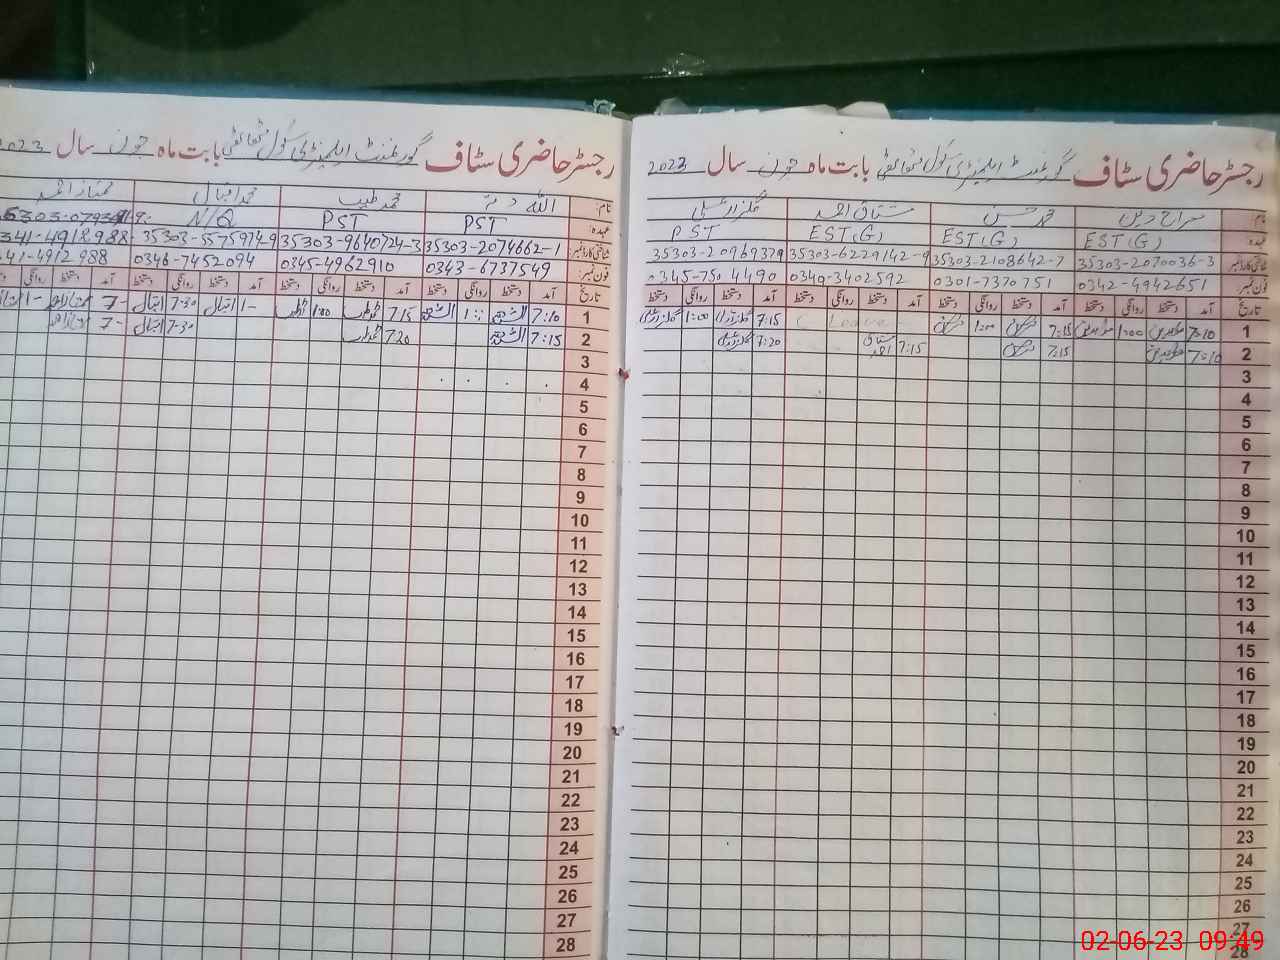 رجسٹر حاضری سٹاف گورنمنٹ ایلیمنٹری سکول بابت ماہ جون سال 2023
نام: سراج دین محمد حسن مشتاق احمد گلزار علی
عہدہ: EST(G) EST(G) EST(G) PST
شناختی کارڈ نمبر 35303-2070036-3 35303-2108642-7 35303-6229142-9 35303-2096937-9
فون نمبر: 0342-4942651 0301-7370751 0340-3402592 0345-7504490
تاریخ آمد دستخط روانگی دستخط آمد دستخط روانگی دستخط آمد دستخط روانگی دستخط آمد دستخط روانگی دستخط
1 7:10 1:00 7:15 1:00 Leave 7:15 گلزار علی 1:00 گلزار علی
2 7:10 7:15 7:15 مشتاق احمد 7:20 گلزار علی
3
4
5
6
7
8
9
10
11
12
13
14
15
16
17
18
19
20
21
22
23
24
25
26
27
28
رجسٹر حاضری سٹاف گورنمنٹ ایلیمنٹری سکول بابت ماہ جون سال 2023
نام: اللہ دتہ محمد طیب محمد اقبال ممتاز احمد
عہدہ: PST PST N/Q
شناختی کارڈ نمبر 35303-2074662-1 35303-9640724-3 35303-5575974-9
فون نمبر: 0343-6737549 0345-4962910 0346-7452094 41-4912988
تاریخ آمد دستخط روانگی دستخط آمد دستخط روانگی دستخط آمد دستخط روانگی دستخط آمد دستخط روانگی
1 7:10 1:: 7:15 1:00 7:30 اقبال 1- اقبال 7- 1-
2 7:15 7:20 7:30 اقبال 7-
3
4
5
6
7
8
9
10
11
12
13
14
15
16
17
18
19
20
21
22
23
24
25
26
27
28
02-06-23 09:49